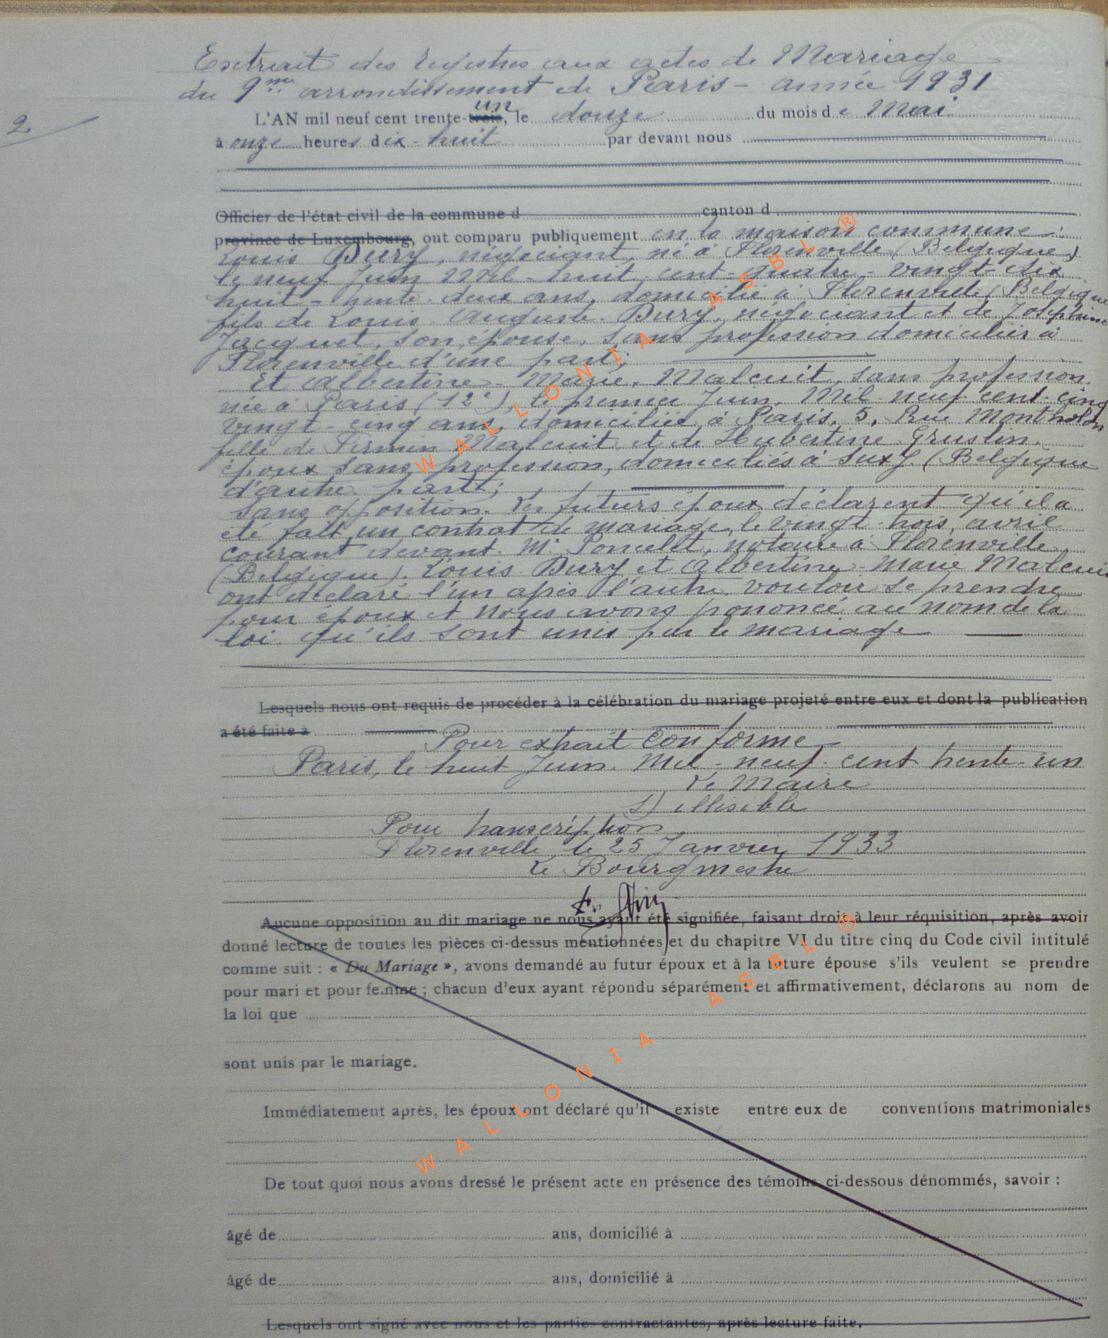 Extrait des registres aux actes de Mariage
du 9me arrondissement de Paris - année 1931
2
L'AN mil neuf cent trente-trois un, le douze du mois de Mai
à onze heures dix-huit par devant nous
Officier de l'état civil de la commune d canton d
province de Luxembourg, ont comparu publiquement en la maison commune :
Louis Dury, négociant, né à Florenville (Belgique)
le neuf Juin Mil-huit cent-quatre-vingt-dix
huit-trente-deux ans, domicilié à Florenville (Belgique
fils de Louis-Auguste Dury, négociant et de Joséphine
Jacquet, son épouse, sans profession domiciliés à
Florenville d'une part;
Et Albertine-Marie Malcuit, sans profession
née à Paris (12e), le premier Juin Mil neuf cent cinq
vingt-cinq ans, domiciliée à Paris, 5, Rue Montholon
fille de Firmin Malcuit et de Hubertine Gruslin.
époux sans profession, domiciliés à Suxy (Belgique
d'autre part;
Sans opposition. Les futurs époux déclarent qu'il a
été fait un contrat de mariage le vingt-trois avril
courant devant Me Poncelet, notaire à Florenville
(Belgique). Louis Dury et Albertine-Marie Malcuit
ont déclaré l'un après l'autre vouloir se prendre
pour époux et Nous avons prononcé au nom de la
loi qu'ils sont unis par le mariage
Lesquels nous ont requis de procéder à la célébration du mariage projeté entre eux et dont la publication
a été faite à
Pour extrait conforme
Paris, le huit Juin Mil-neuf cent trente-un
Le Maire
S) illisible
Pour transcription
Florenville, le 25 Janvier 1933
Le Bourgmestre
Aucune opposition au dit mariage ne nous ayant été signifiée, faisant droit à leur réquisition, après avoir
donné lecture de toutes les pièces ci-dessus mentionnées et du chapitre VI du titre cinq du Code civil intitulé
comme suit : « Du Mariage », avons demandé au futur époux et à la future épouse s'ils veulent se prendre
pour mari et pour femme ; chacun d'eux ayant répondu séparément et affirmativement, déclarons au nom de
la loi que
sont unis par le mariage.
Immédiatement après, les époux ont déclaré qu'il existe entre eux de conventions matrimoniales
De tout quoi nous avons dressé le présent acte en présence des témoins ci-dessous dénommés, savoir :
âgé de ans, domicilié à
âgé de ans, domicilié à
Lesquels ont signé avec nous et les parties contractantes, après lecture faite.
WALLONIA ASBL ®
WALLONIA ASBL ®